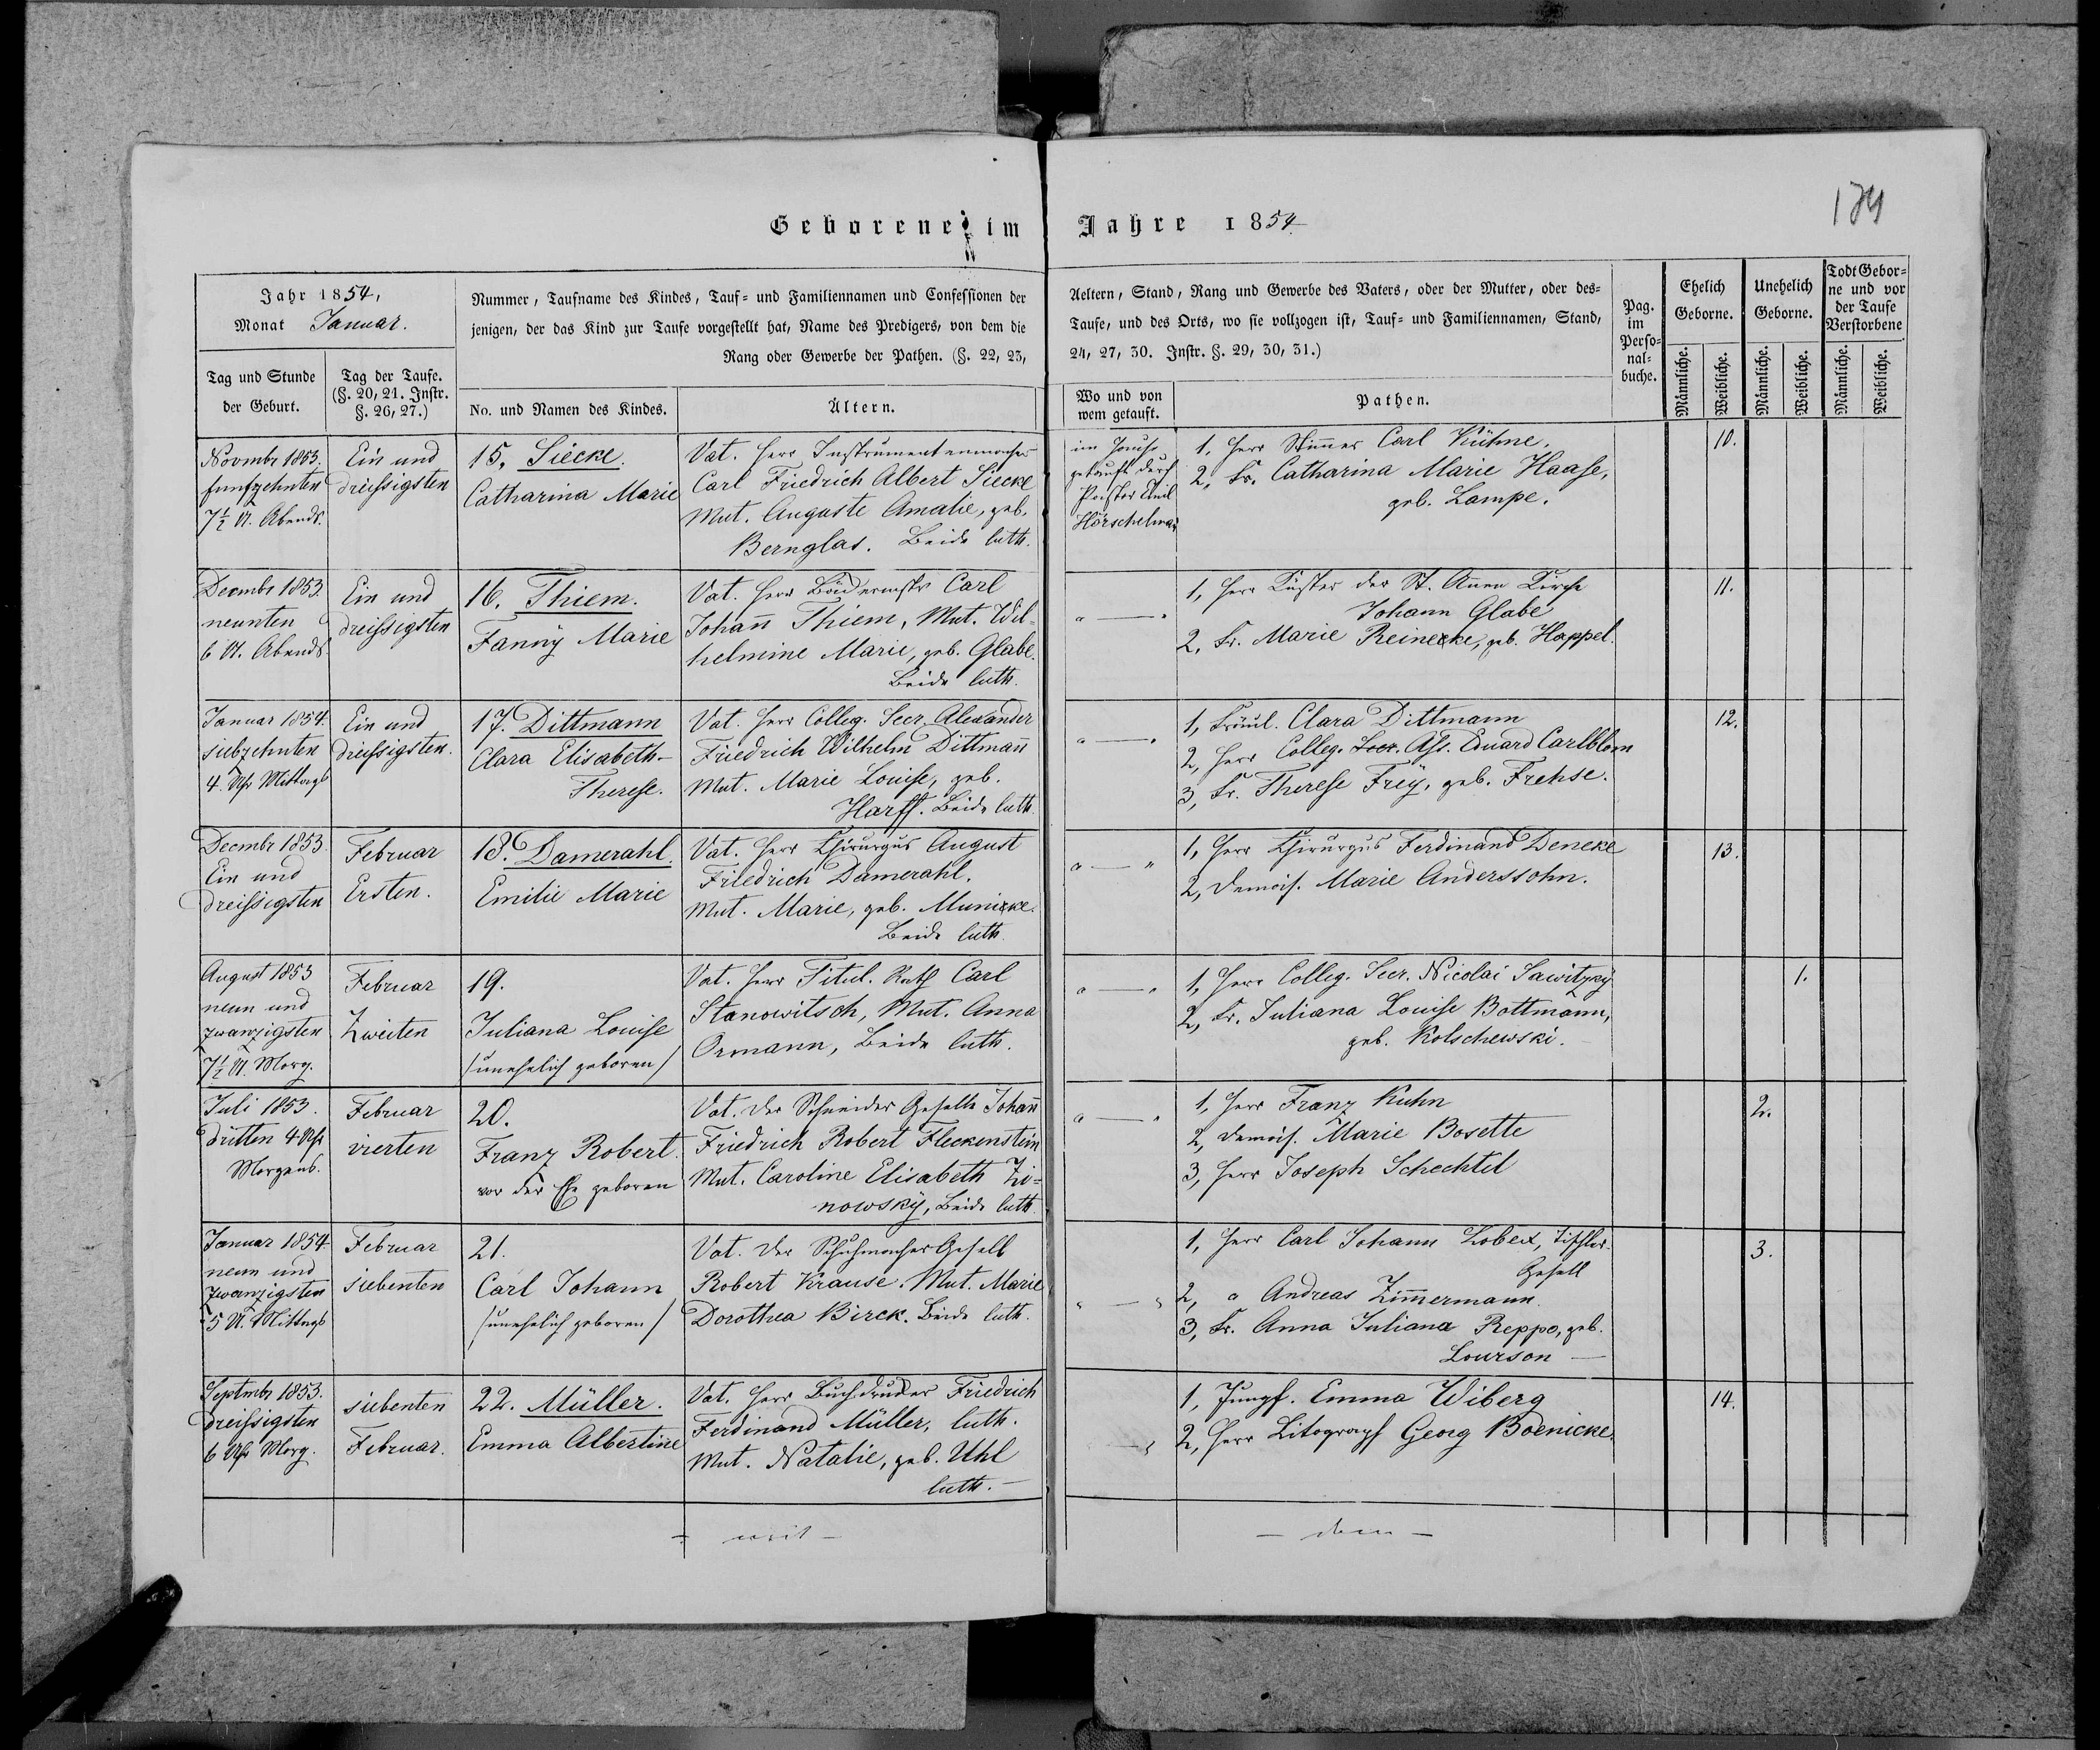 Geborene im Jahre 1854
184
Jahr 1854,
Monat Januar.
Nummer, Taufname des Kindes, Tauf- und Familiennamen und Confessionen der
jenigen, der das Kind zur Taufe vorgestellt hat, Name des Predigers, von dem die
Rang oder Gewerbe der Pathen. (§. 22, 23,
Aeltern, Stand, Rang und Gewerbe des Vaters, oder der Mutter, oder des-
Taufe, und des Orts, wo sie vollzogen ist, Tauf- und Familiennamen, Stand,
24, 27, 30. Instr. §. 29, 30, 31.)
Tag und Stunde
der Geburt.
Tag der Taufe.
(§. 20, 21. Instr.
§. 26, 27.)
No. und Namen des Kindes.
Ältern.
Wo und von
wem getauft.
Pathen.
Pag.
im
Perso-
nal-
buche.
Ehelich
Geborne.
Unehelich
Geborne.
Todt Gebor-
ne und vor
der Taufe
Verstorbene
Männliche.
Weibliche.
Männliche.
Weibliche.
Männliche.
Weibliche.
Novmbr 1853.
funfzehnten
7½ U. Abends.
Ein und
dreissigsten
15. Siecke.
Catharina Marie
Vat. Herr Instrumentenmacher
Carl Friedrich Albert Siecke
Mut. Auguste Amalie, geb.
Bernglas. Beide luth.
im Hause
getauft durch
Pastor Emil
Hörschelman
1, Herr Stimmer Carl Kühne.
2, Fr. Catharina Marie Haase,
geb. Lampe.
10.
Decmbr 1853.
neunten
6 U. Abends
Ein und
dreissigsten
16. Thiem.
Fanny Marie
Vat. Herr Bäckermstr Carl
Johann Thiem, Mut. Wil-
helmine Marie, geb. Glabe.
Beide luth.
" — "
1, Herr Küster der St. Annen Kirche
Johann Glabe
2, Fr. Marie Reinecke, geb. Happel.
11.
Januar 1854.
siebzehnten
4. Uhr Mittags
Ein und
dreissigsten.
17. Dittmann
Clara Elisabeth-
Therese.
Vat. Herr Colleg. Secr. Alexander
Friedrich Wilhelm Dittmann
Mut. Marie Louise, geb.
Harff. Beide luth
" — "
1, Fräul. Clara Dittmann
2, Herr Colleg. Secr. Ass. Eduard Carlblom
3, Fr. Therese Frey, geb. Frehse.
12.
Decmbr 1853.
Ein und
dreissigsten
Februar
Ersten.
18. Damerahl.
Emilie Marie
Vat. Herr Chirurgus August
Friedrich Damerahl.
Mut. Marie, geb. Municke.
Beide luth.
" — "
1, Herr Chirurgus Ferdinand Deneke
2, Demois. Marie Anderssohn.
13.
August 1853
neun und
zwanzigsten
7½ U. Morg.
Februar
Zweiten
19.
Juliana Louise
/unehelich geboren/
Vat. Herr Titul. Rath Carl
Stanowitsch, Mut. Anna
Ormann, Beide luth.
" — "
1, Herr Colleg. Secr. Nicolai Sawitzky
2, Fr. Juliana Louise Bottmann,
geb. Kolschewski.
1.
Juli 1853.
dritten 4 Uhr
Morgens.
Februar
vierten
20.
Franz Robert.
vor der Ehe geboren
Vat. der Schneider Geselle Johann
Friedrich Robert Fleckenstein
Mut. Caroline Elisabeth Zi-
nowsky, Beide luth.
" — "
1, Herr Franz Kuhn
2, Demois. Marie Bosette
3, Herr Joseph Schechtel
2.
Januar 1854.
neun und
zwanzigsten
5 U. Mittags
Februar
siebenten
21.
Carl Johann
/unehelich geboren/
Vat. der Schuhmacher Gesell
Robert Krause. Mut. Marie
Dorothea Birck. Beide luth.
" — "
1, Herr Carl Johann Lobeck, Tischler-
Gesell
2, " Andreas Zimmermann.
3, Fr. Anna Juliana Reppo, geb.
Lourson —
3.
Septmbr 1853.
dreissigsten
6 Uhr Morg.
siebenten
Februar.
22. Müller.
Emma Albertine
Vat. Herr Buchdrucker Friedrich
Ferdinand Müller, luth.
Mut. Natalie, geb. Uhl
luth. —
— "
1, Jungf. Emma Wiberg
2, Herr Litograph Georg Boenicke.
14.
- mit -
- dem -